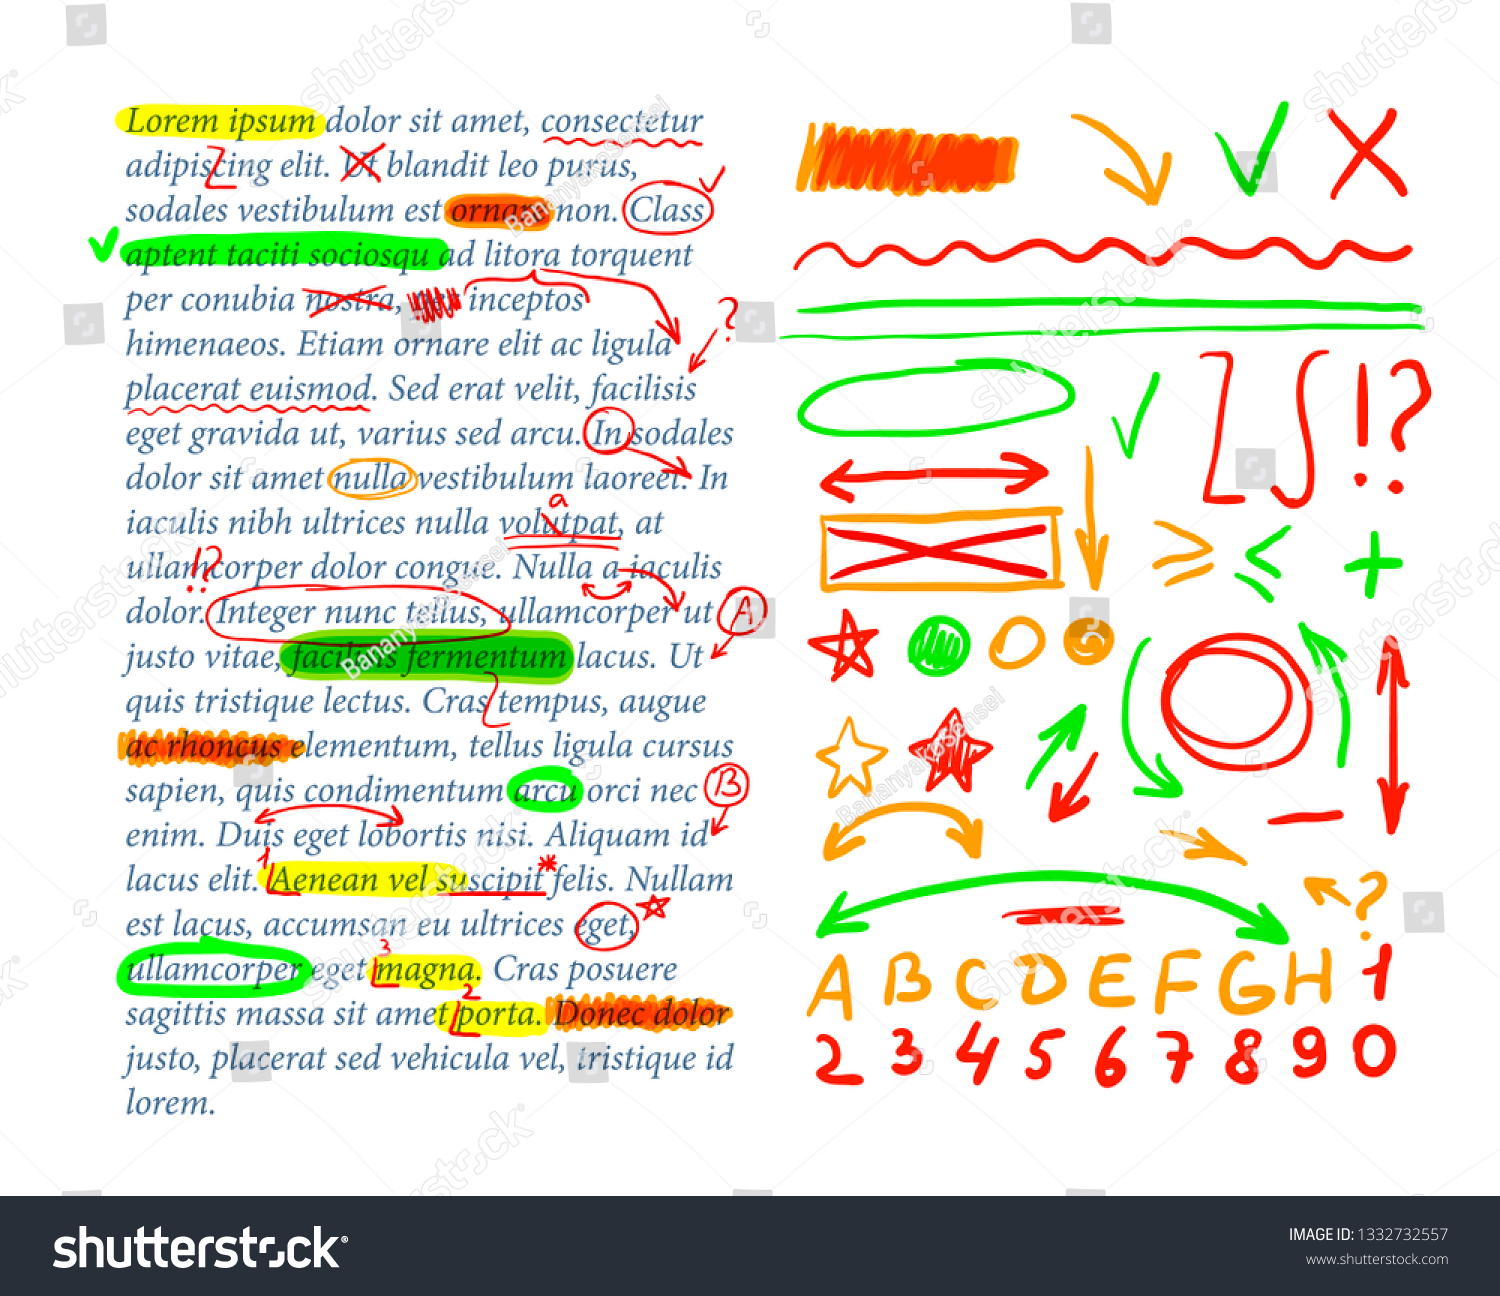 Lorem ipsum dolor sit amet, consectetur
adipiscing elit. Ut blandit leo purus,
sodales vestibulum est ornare non. Class
aptent taciti sociosqu ad litora torquent
per conubia nostra, inceptos
himenaeos. Etiam ornare elit ac ligula
?
placerat euismod. Sed erat velit, facilisis
eget gravida ut, varius sed arcu. In sodales
dolor sit amet nulla vestibulum laoreet. In
a
iaculis nibh ultrices nulla volutpat, at
!?
ullamcorper dolor congue. Nulla a iaculis
dolor. Integer nunc tellus, ullamcorper ut A
justo vitae, facilisis fermentum lacus. Ut
quis tristique lectus. Cras tempus, augue
ac rhoncus elementum, tellus ligula cursus
sapien, quis condimentum arcu orci nec B
enim. Duis eget lobortis nisi. Aliquam id
1
lacus elit. Aenean vel suscipit* felis. Nullam
est lacus, accumsan eu ultrices eget,
3
ullamcorper eget magna. Cras posuere
2
sagittis massa sit amet porta. Donec dolor
justo, placerat sed vehicula vel, tristique id
lorem.
!?
+
?
A B C D E F G H 1
2 3 4 5 6 7 8 9 0
shutterstock
BananyakoSensei
shutterstock
IMAGE ID: 1332732557
www.shutterstock.com